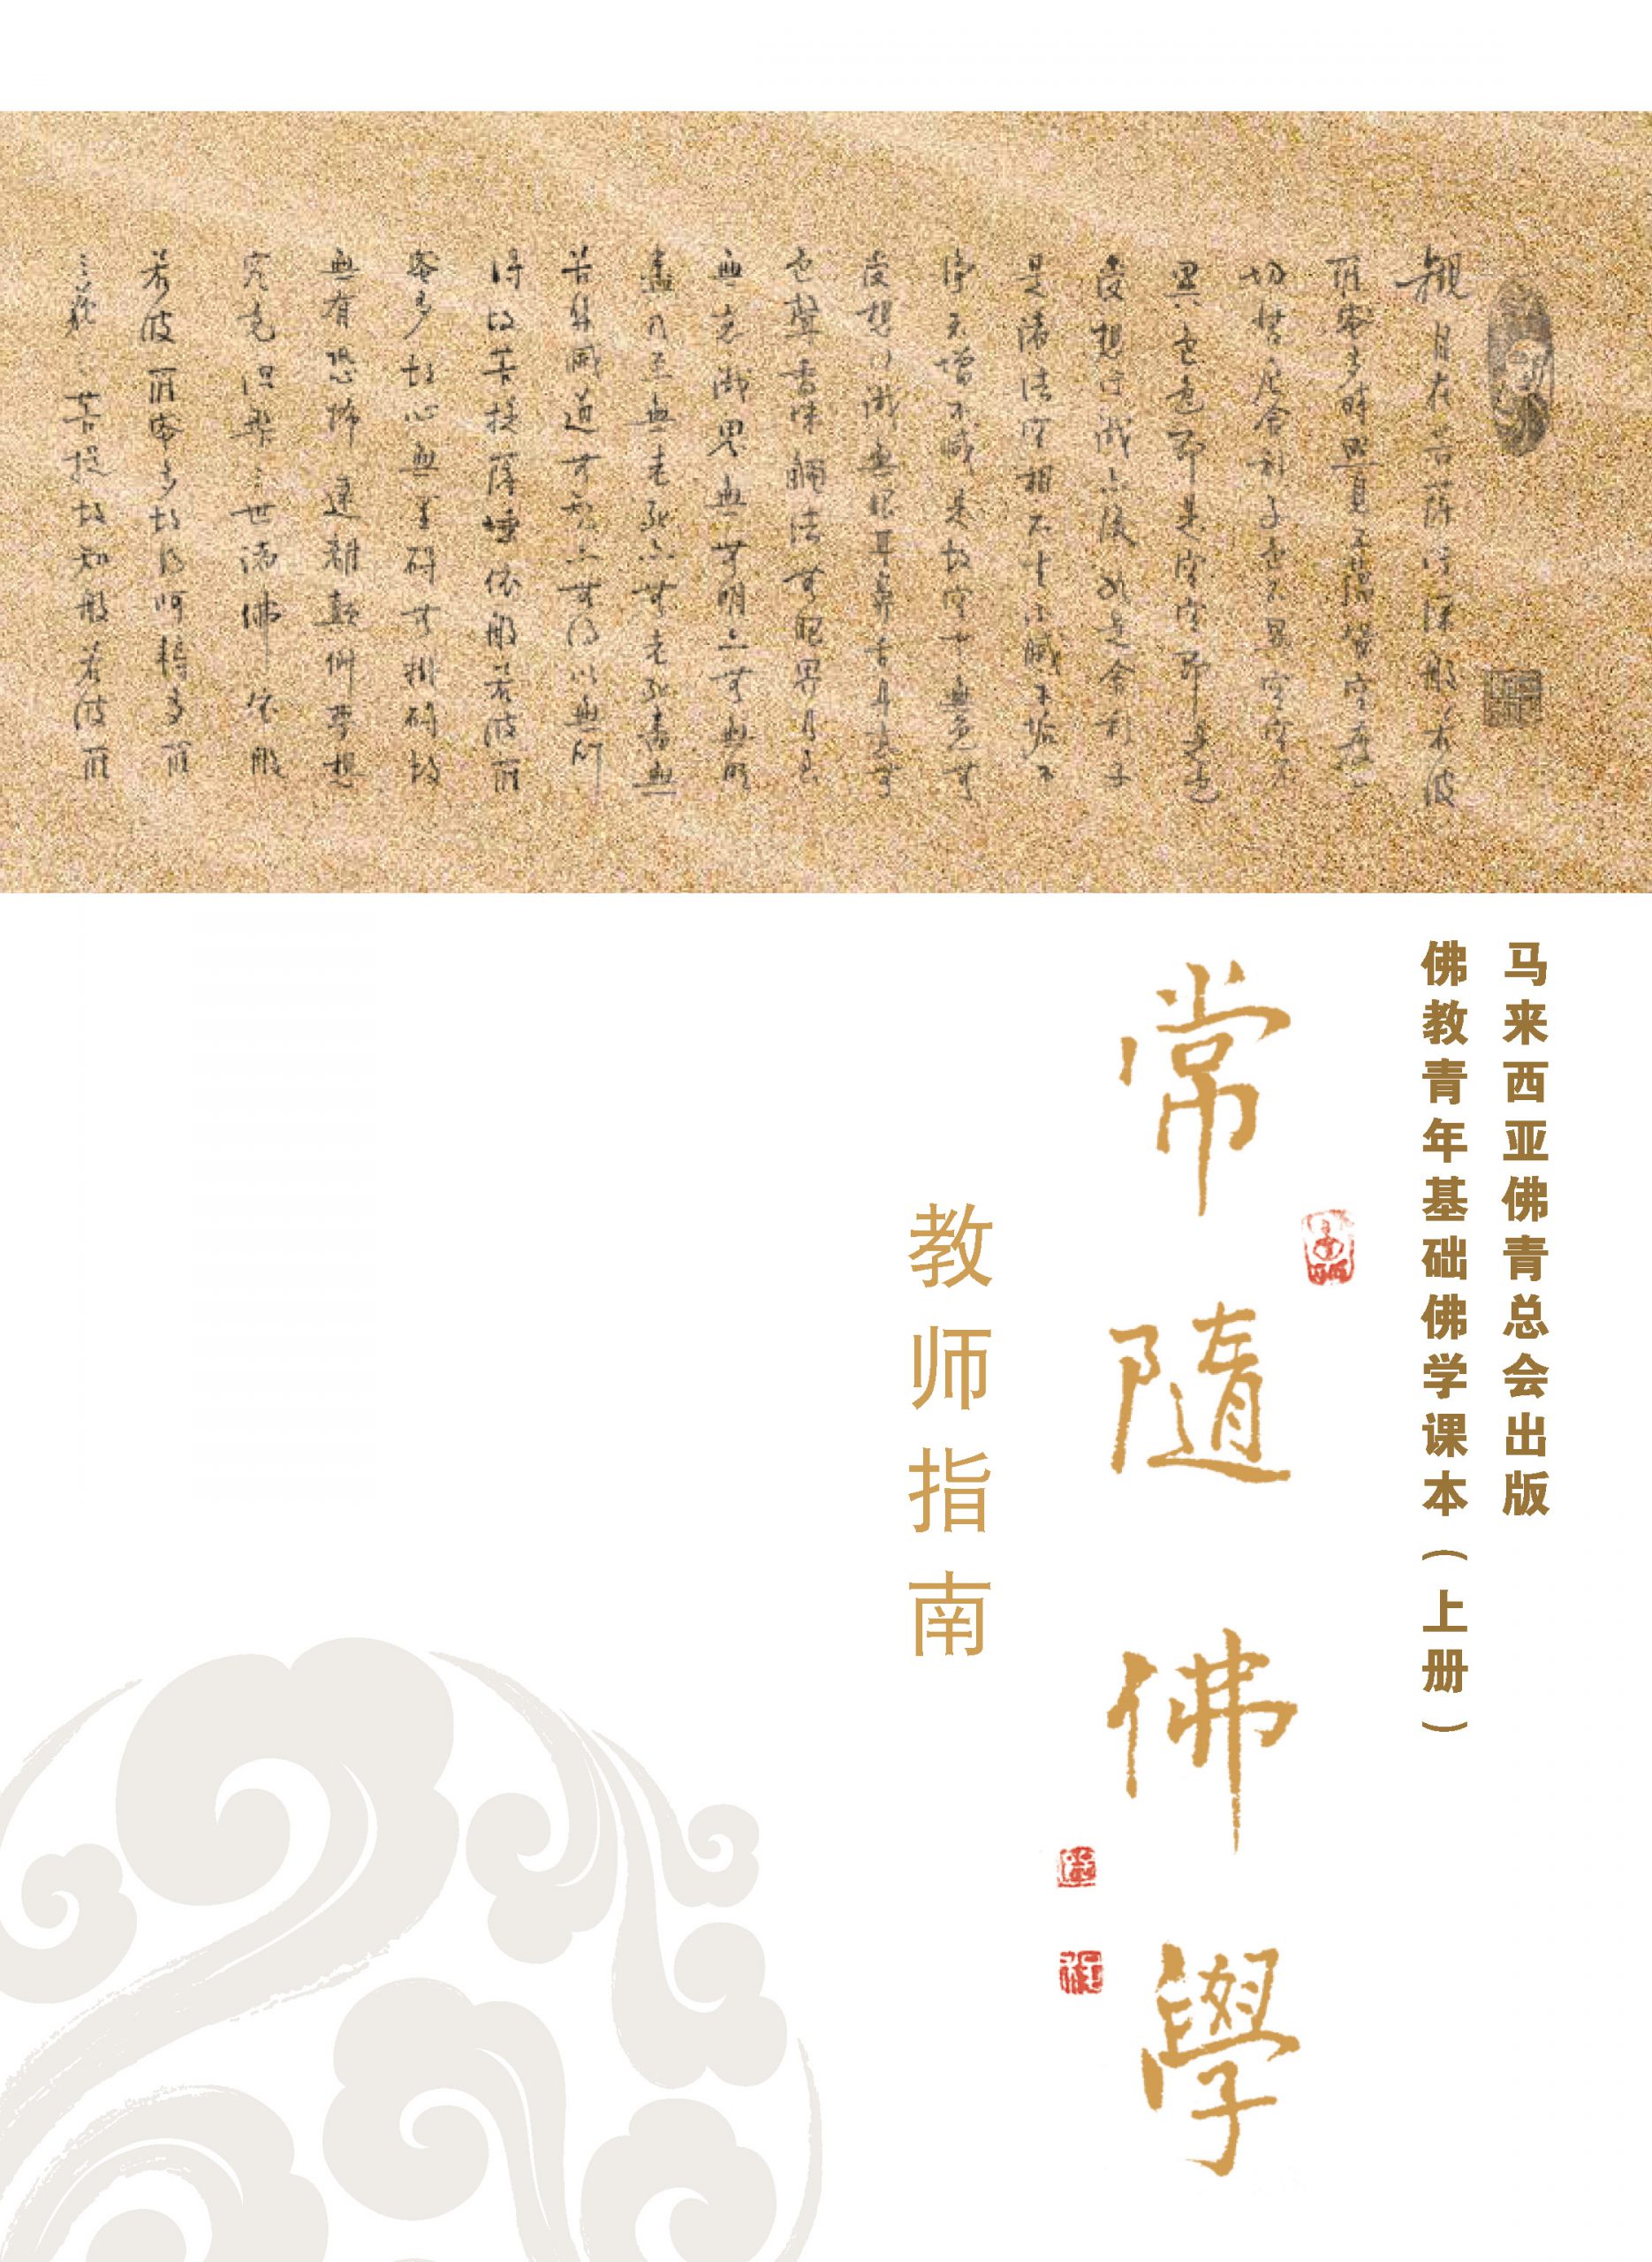 觀自在菩薩行深般若波
羅蜜多時照見五蘊皆空度一
切苦厄舍利子色不異空空不
異色色即是空空即是色
受想行識亦復如是舍利子
是諸法空相不生不滅不垢不
淨不增不減是故空中無色无
受想行識無眼耳鼻舌身意无
色聲香味觸法无眼界乃至
無意識界無无明亦无無明
盡乃至無老死亦无老死盡無
苦集滅道无智亦无得以無所
得故菩提薩埵依般若波羅
蜜多故心無罣碍无掛碍故
無有恐怖遠離顛倒夢想
究竟涅槃三世諸佛依般
若波羅蜜多故得阿耨多羅
三藐三菩提故知般若波羅
马来西亚佛青总会出版
佛教青年基础佛学课本（上册）
常隨佛學
教师指南